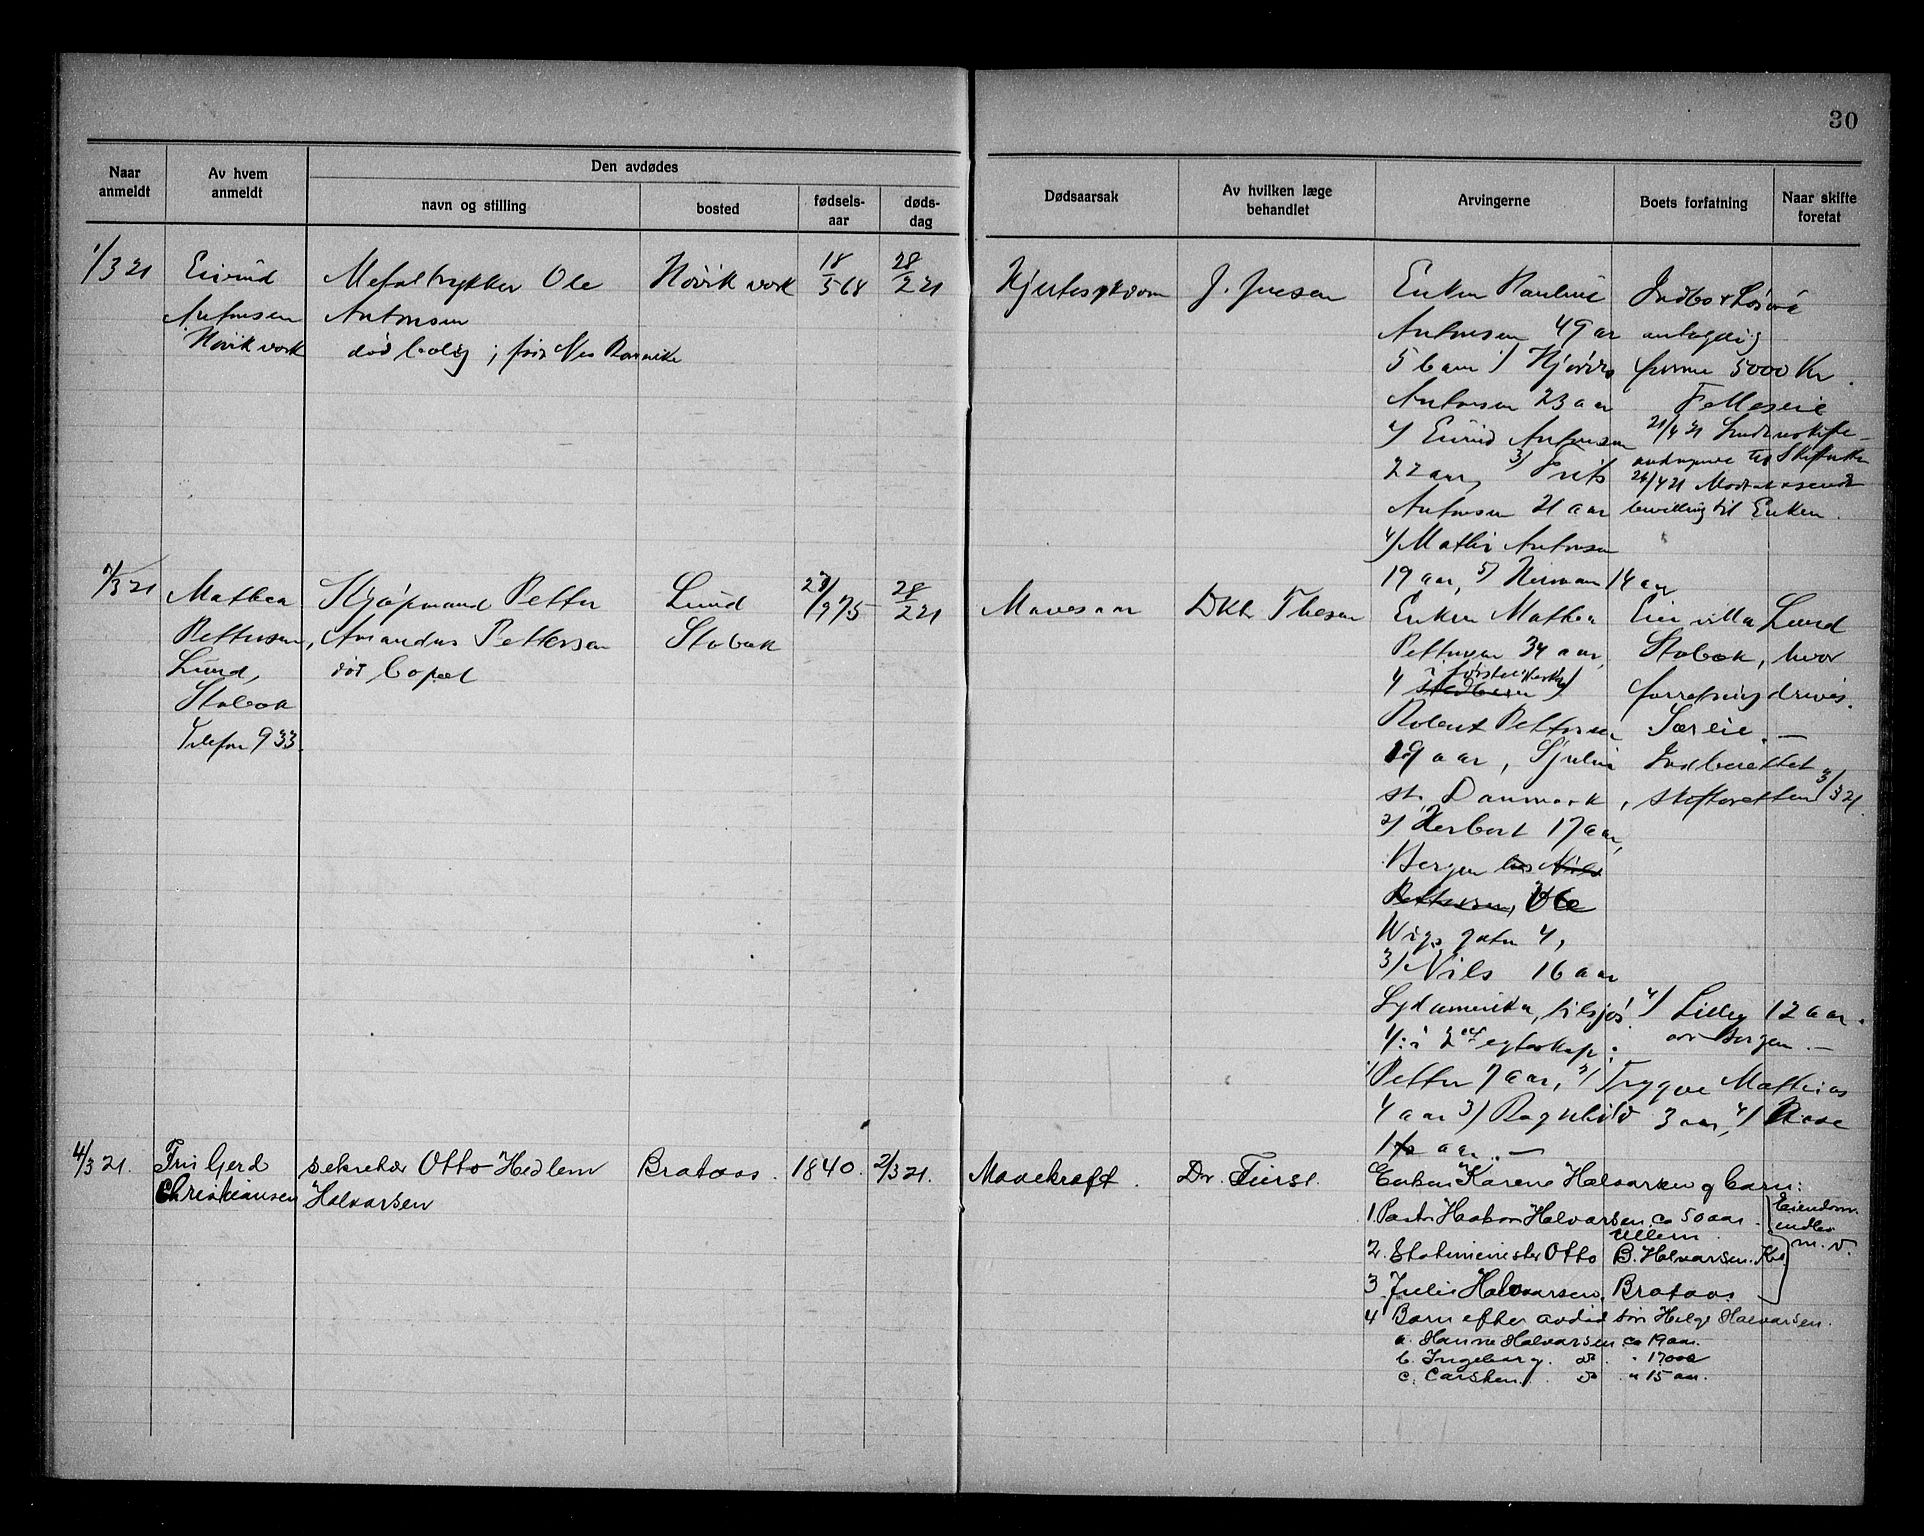 30
Naar anmeldt
Av hvem anmeldt
Den avdødes
navn og stilling
bosted
fødsels-aar
døds-dag
Dødsaarsak
Av hvilken læge behandlet
Arvingerne
Boets forfatning
Naar skifte foretat
1/3 21
Eivind
Antonsen
Høvik verk
Metaltrykker Ole
Antonsen
død bolig;
Høvik verk
18/5 68
28/2 21
Hjertesykdom
Enken Pauline
Antonsen 49 aar
5 barn 1/
Antonsen 23 aar
2/ Eivind Antonsen
22 aar, 3/ Frits
Antonsen 21 aar
4/ Mathis Antonsen
19 aar, 5/ Herman 14 aar
Indbo & Løsøre
antagelig
5000 Kr.
Felleseie
21/4 21
26/4 21
bevilling til Enken.
1/3 21
Mathea
Pettersen,
Lund,
Stabæk
Telefon 933.
Kjøpmand Petter
Amandus Pettersen
død bopæl
Lund
Stabæk
28/2 21
Mavesaar
Enken Mathea
Pettersen 34 aar,
4
Robert Pettersen
19 aar,
st. Danmark,
2/ Herbert 17 aar,
Bergen hos Nils
Pettersen, Ole
gate 4,
3/ Nils 16 aar
Sydamerika, tilsjøs 4/ Lilley 12 aar.
i 2det egteskap: Bergen. —
1/ Petter 7 aar, 2/ Trygve Mathias
4 aar 3/ Ragnhild 3 aar, 4/
aar. —
Eier villa Lund
Stabæk, hvor
forretning drives.
Særeie. —
Indberettet
skifteretten 3/3 21.
4/3 21.
Fru Gerd
Christiansen
sekretær Otto
Halvorsen
Brataas.
1840.
2/3 21.
Mavekræft.
Dr. Fürst.
Enken Karene Halvorsen og barn:
1. Pastor Haakon Halvorsen ca 50 aar.
Ullern.
2. Statsminister Otto B. Halvorsen.
3. Julie Halvorsen. Brataas
4 Barn efter avdød søn Helge Halvorsen.
a. Hanna Halvorsen ca 19 aar.
b. Ingeborg. do. " 17 aar
c. Carsten. do " 15 aar.
Eiendom
m. v.